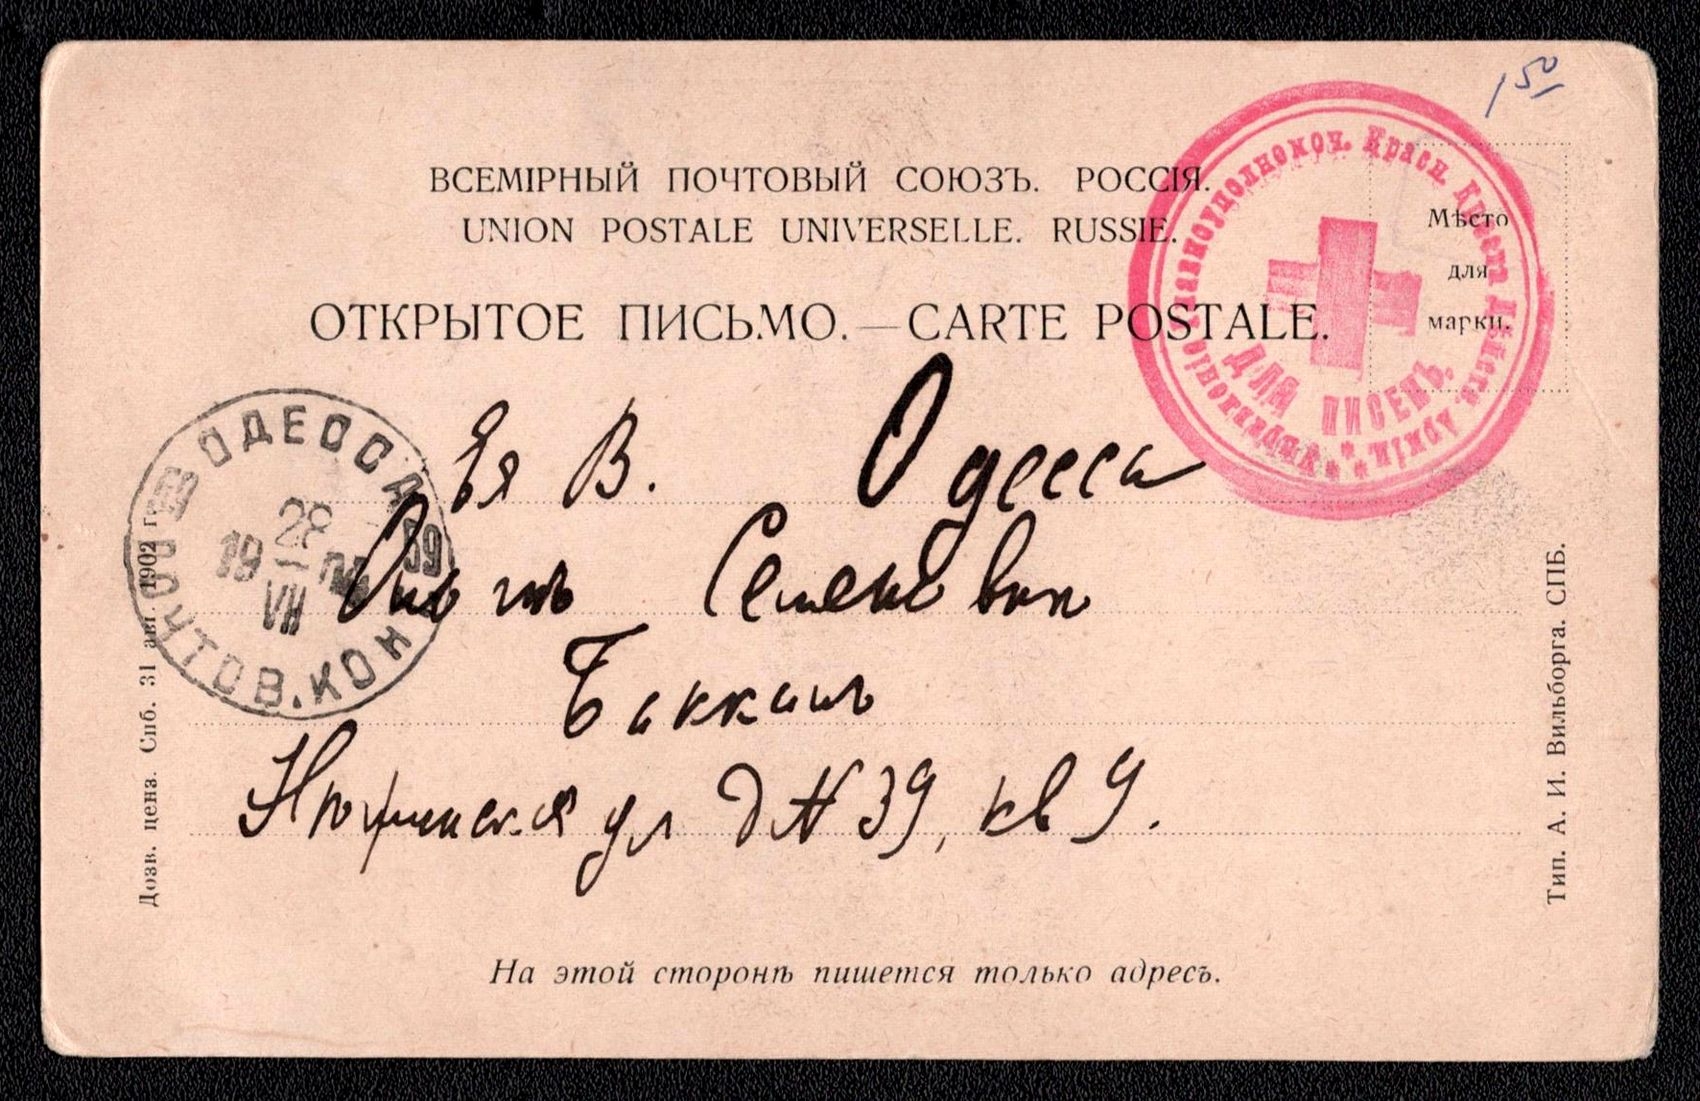 1 50
ВСЕМІРНЫЙ ПОЧТОВЫЙ СОЮЗЪ. РОССІЯ.
UNION POSTALE UNIVERSELLE. RUSSIE.
ОТКРЫТОЕ ПИСЬМО.—CARTE POSTALE.
Мѣсто
для
марки.
Красн.
ДЛЯ ПИСЕМЪ.
ОДЕССА
28
19 04
VII
ПОЧТОВ. КОН
Ея В. Одесса
Семеновнѣ
Баккалъ
ул д № 39, кв 9.
На этой сторонѣ пишется только адресъ.
Дозв. ценз. Спб. 31 авг. 1902 г.
Тип. А. И. Вильборга. СПБ.